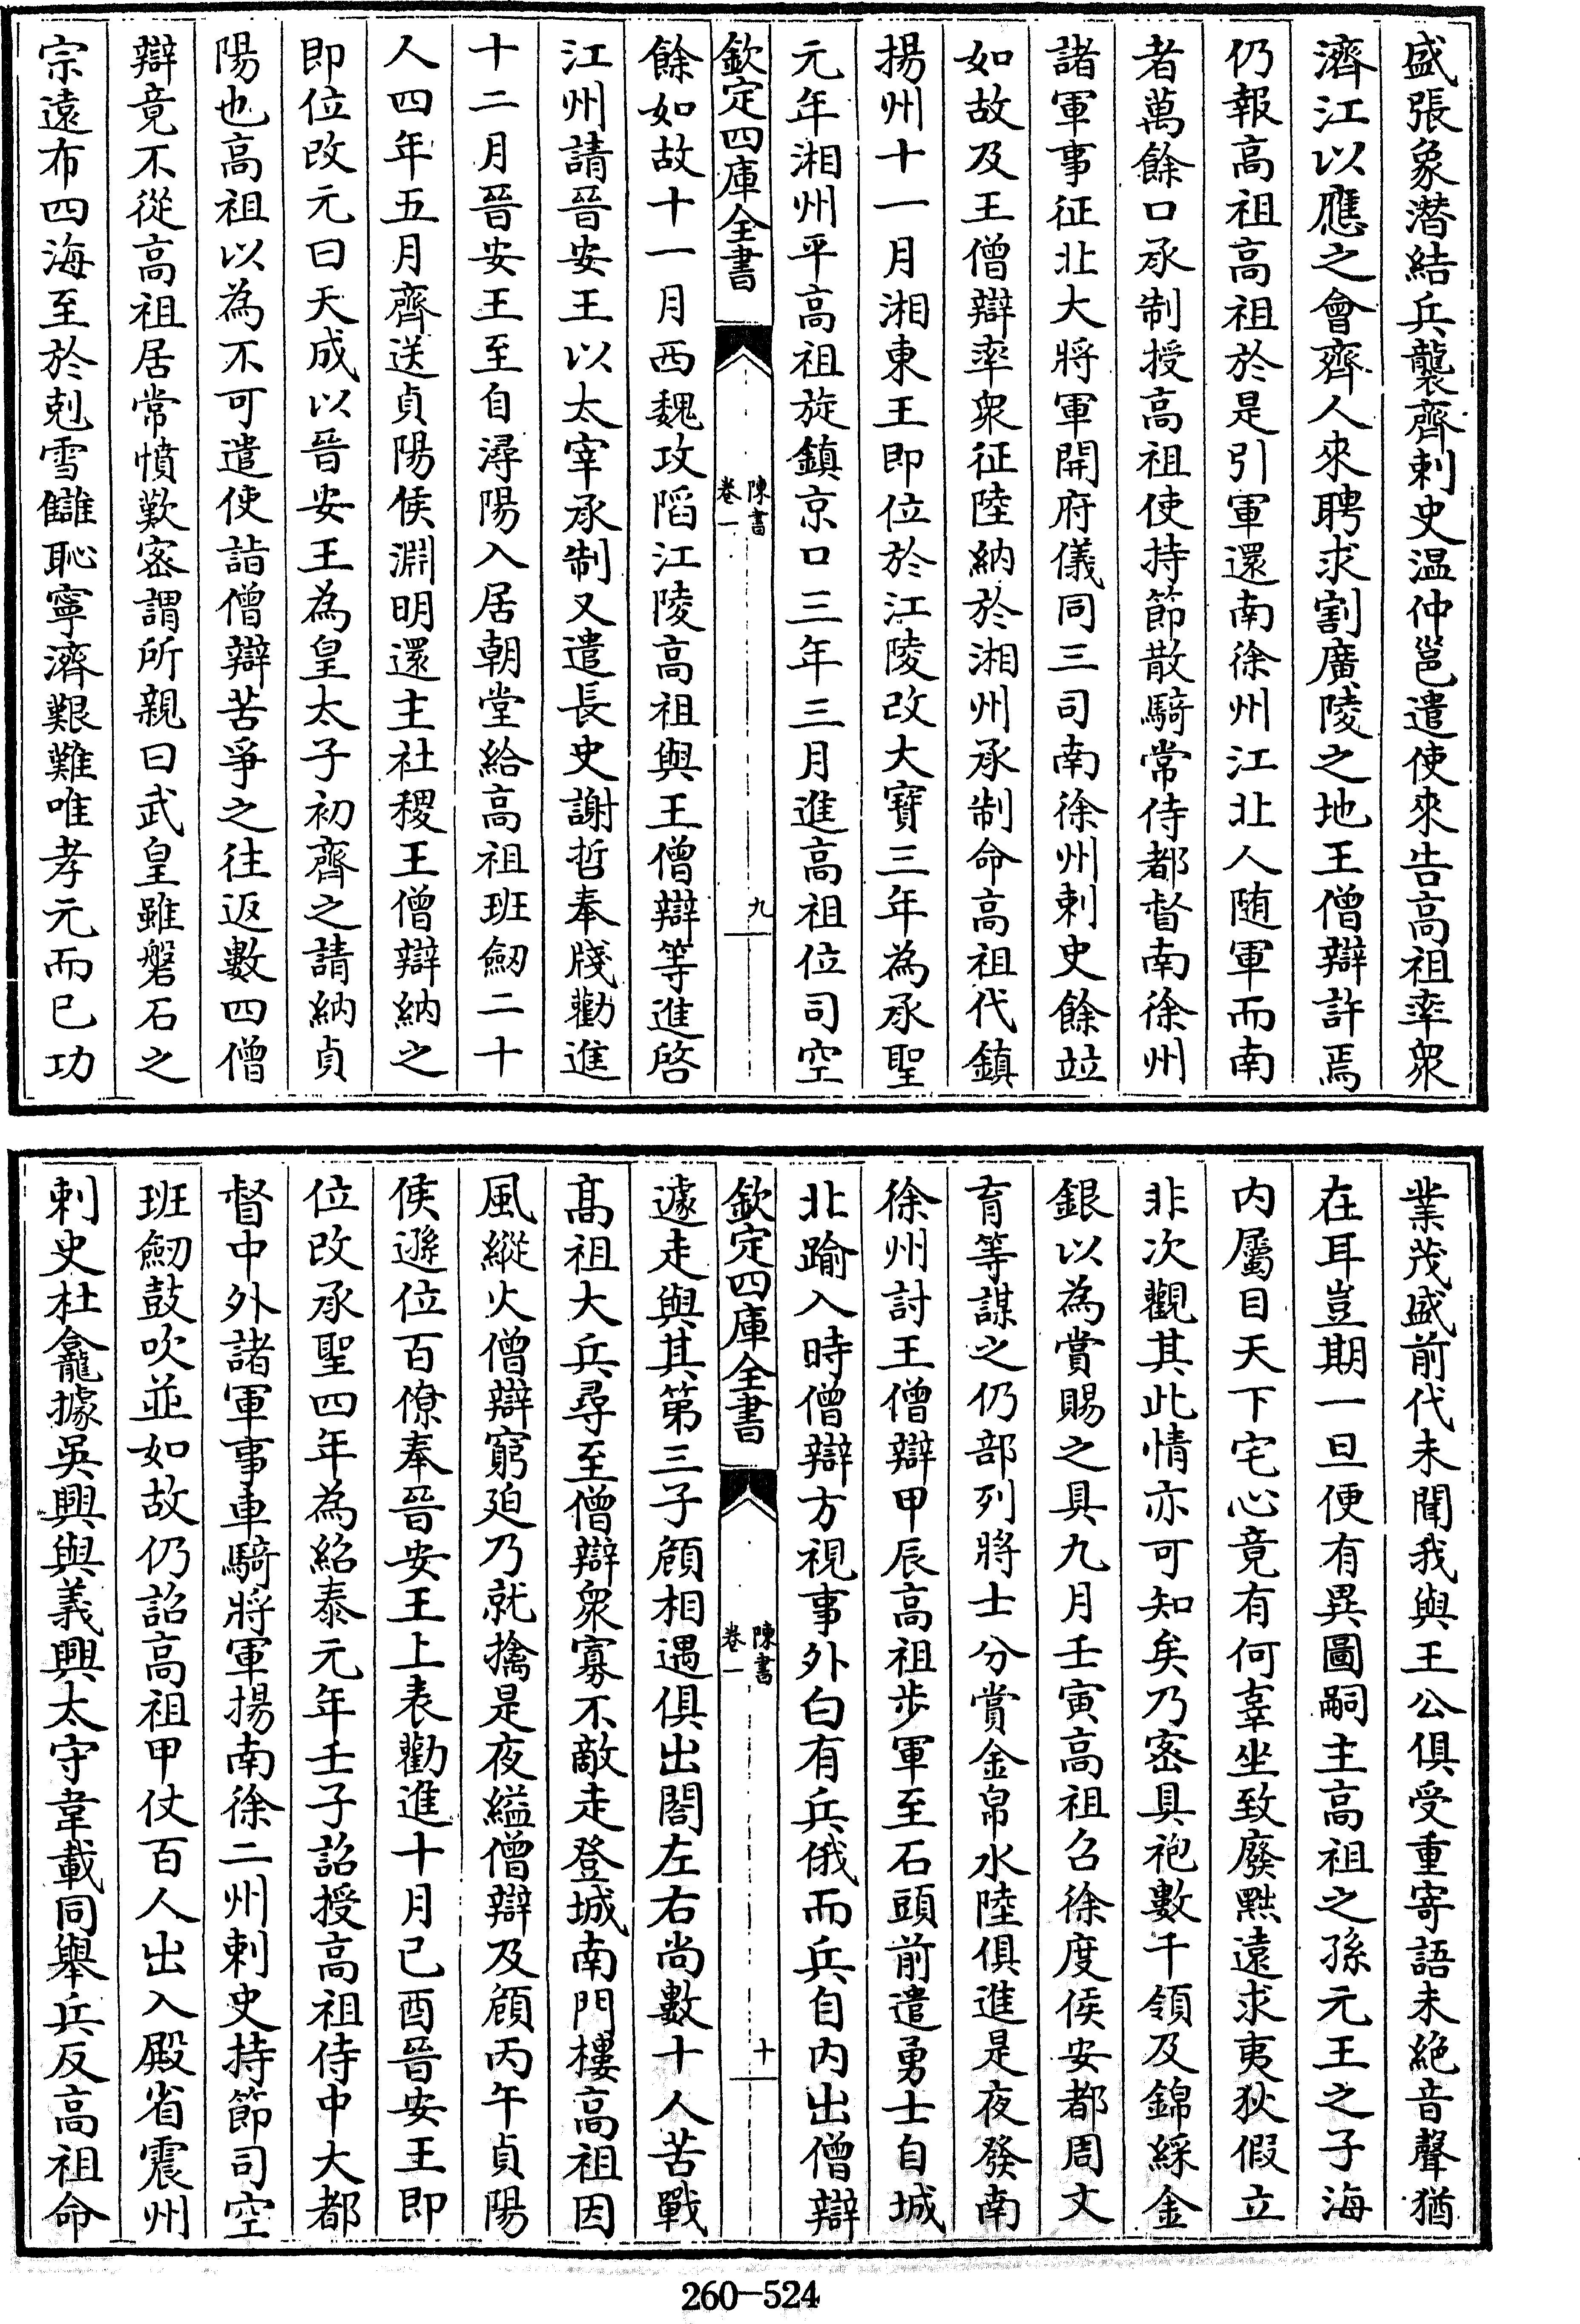 盛張象潛結兵襲齊刺史温仲邕遣使來告高祖率衆
濟江以應之會齊人來聘求割廣陵之地王僧辯許焉
仍報高祖高祖於是引軍還南徐州江北人随軍而南
者萬餘口承制授高祖使持節散騎常侍都督南徐州
諸軍事征北大將軍開府儀同三司南徐州刺史餘竝
如故及王僧辯率衆征陸納於湘州承制命高祖代鎮
揚州十一月湘東王即位於江陵改大寶三年為承聖
元年湘州平高祖旋鎮京口三年三月進高祖位司空
欽定四庫全書
陳書
卷一
九
餘如故十一月西魏攻䧟江陵高祖與王僧辯等進啓
江州請晉安王以太宰承制又遣長史謝哲奉牋勸進
十二月晉安王至自潯陽入居朝堂給高祖班劒二十
人四年五月齊送貞陽侯淵明還主社稷王僧辯納之
即位改元曰天成以晉安王為皇太子初齊之請納貞
陽也高祖以為不可遣使詣僧辯苦爭之往返數四僧
辯竟不從高祖居常憤歎宻謂所親曰武皇雖磐石之
宗遠布四海至於剋雪讎恥寧濟艱難唯孝元而已功
業茂盛前代未聞我與王公俱受重寄語未絶音聲猶
在耳豈期一旦便有異圖嗣主高祖之孫元王之子海
内屬目天下宅心竟有何辜坐致廢黜遠求夷狄假立
非次觀其此情亦可知矣乃宻具袍數千領及錦綵金
銀以為賞賜之具九月壬寅高祖召徐度侯安都周文
育等謀之仍部列將士分賞金帛水陸俱進是夜發南
徐州討王僧辯甲辰高祖步軍至石頭前遣勇士自城
北踰入時僧辯方視事外白有兵俄而兵自内出僧辯
欽定四庫全書
陳書
卷一
十
遽走與其第三子頠相遇俱出閤左右尚數十人苦戰
高祖大兵尋至僧辯衆寡不敵走登城南門樓高祖因
風縱火僧辯窮廹乃就擒是夜縊僧辯及頠丙午貞陽
侯遜位百僚奉晉安王上表勸進十月己酉晉安王即
位改承聖四年為紹泰元年壬子詔授高祖侍中大都
督中外諸軍事車騎將軍揚南徐二州刺史持節司空
班劒鼓吹並如故仍詔高祖甲仗百人出入殿省震州
刺史杜龕據吳興與義興太守韋載同舉兵反高祖命
260-524